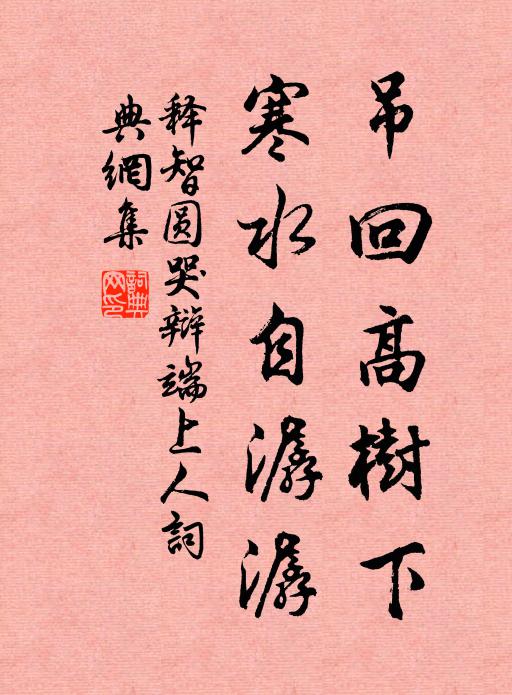 吊回高樹下
寒水自潺潺
释智圆哭辯端上人詞
典網集
詞典網印